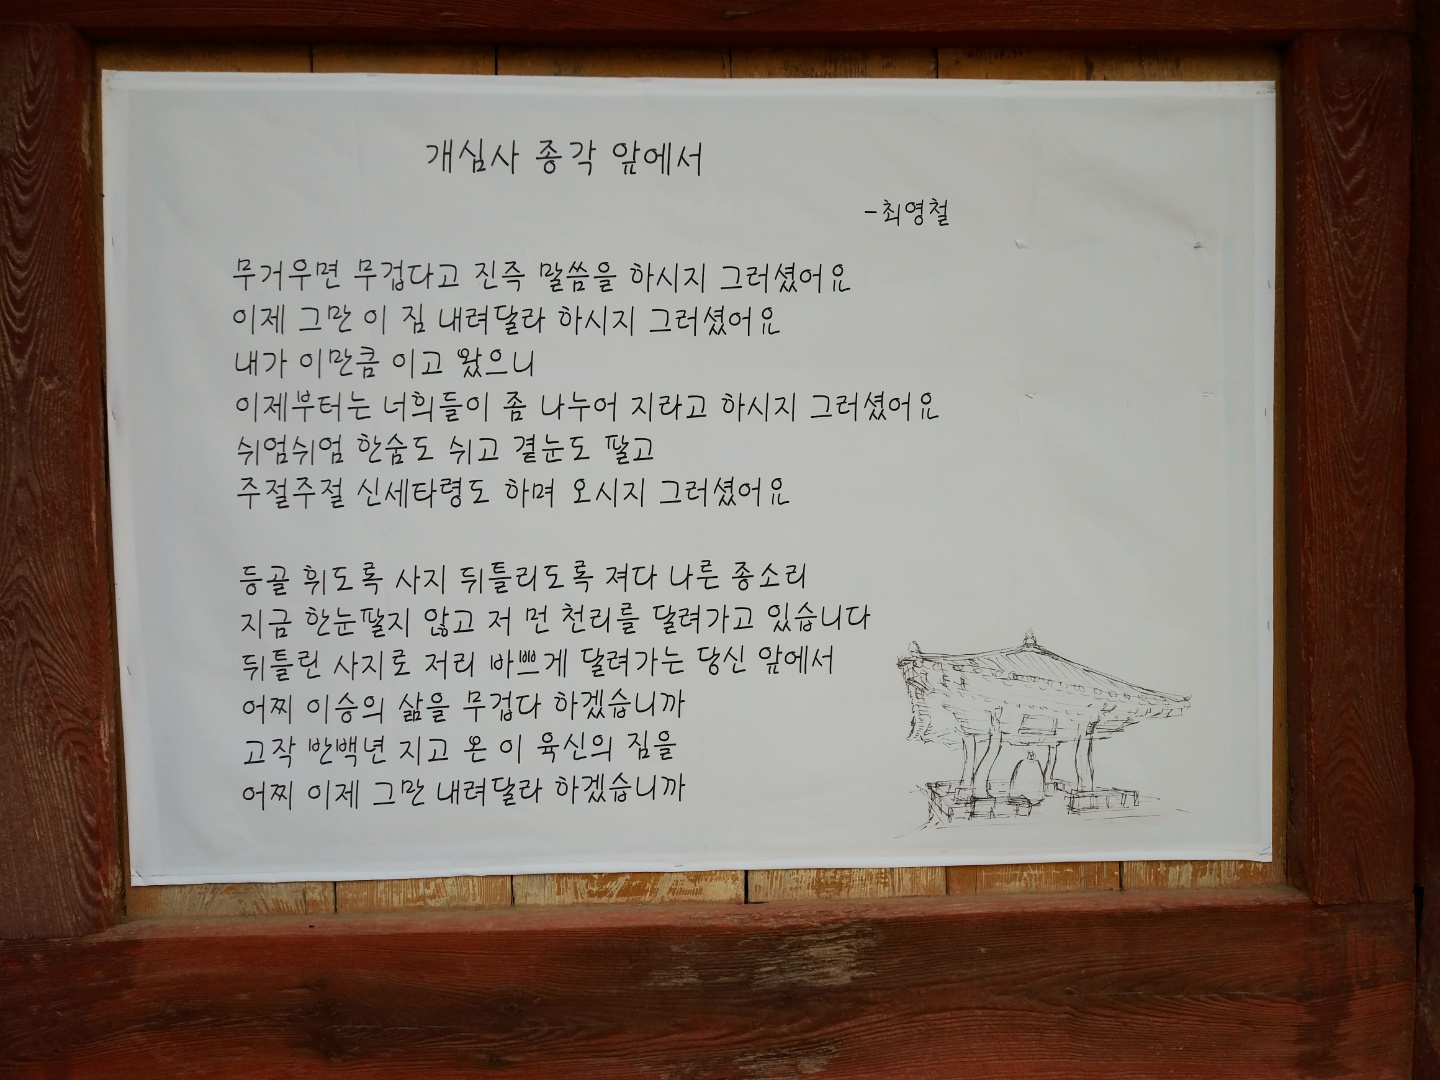 개심사 종각 앞에서
-최영철
무거우면 무겁다고 진즉 말씀을 하시지 그러셨어요
이제 그만 이 짐 내려달라 하시지 그러셨어요
내가 이만큼 이고 왔으니
이제부터는 너희들이 좀 나누어 지라고 하시지 그러셨어요
쉬엄쉬엄 한숨도 쉬고 곁눈도 팔고
주절주절 신세타령도 하며 오시지 그러셨어요
등골 휘도록 사지 뒤틀리도록 져다 나른 종소리
지금 한눈팔지 않고 저 먼 천리를 달려가고 있습니다
뒤틀린 사지로 저리 바쁘게 달려가는 당신 앞에서
어찌 이승의 삶을 무겁다 하겠습니까
고작 반백년 지고 온 이 육신의 짐을
어찌 이제 그만 내려달라 하겠습니까